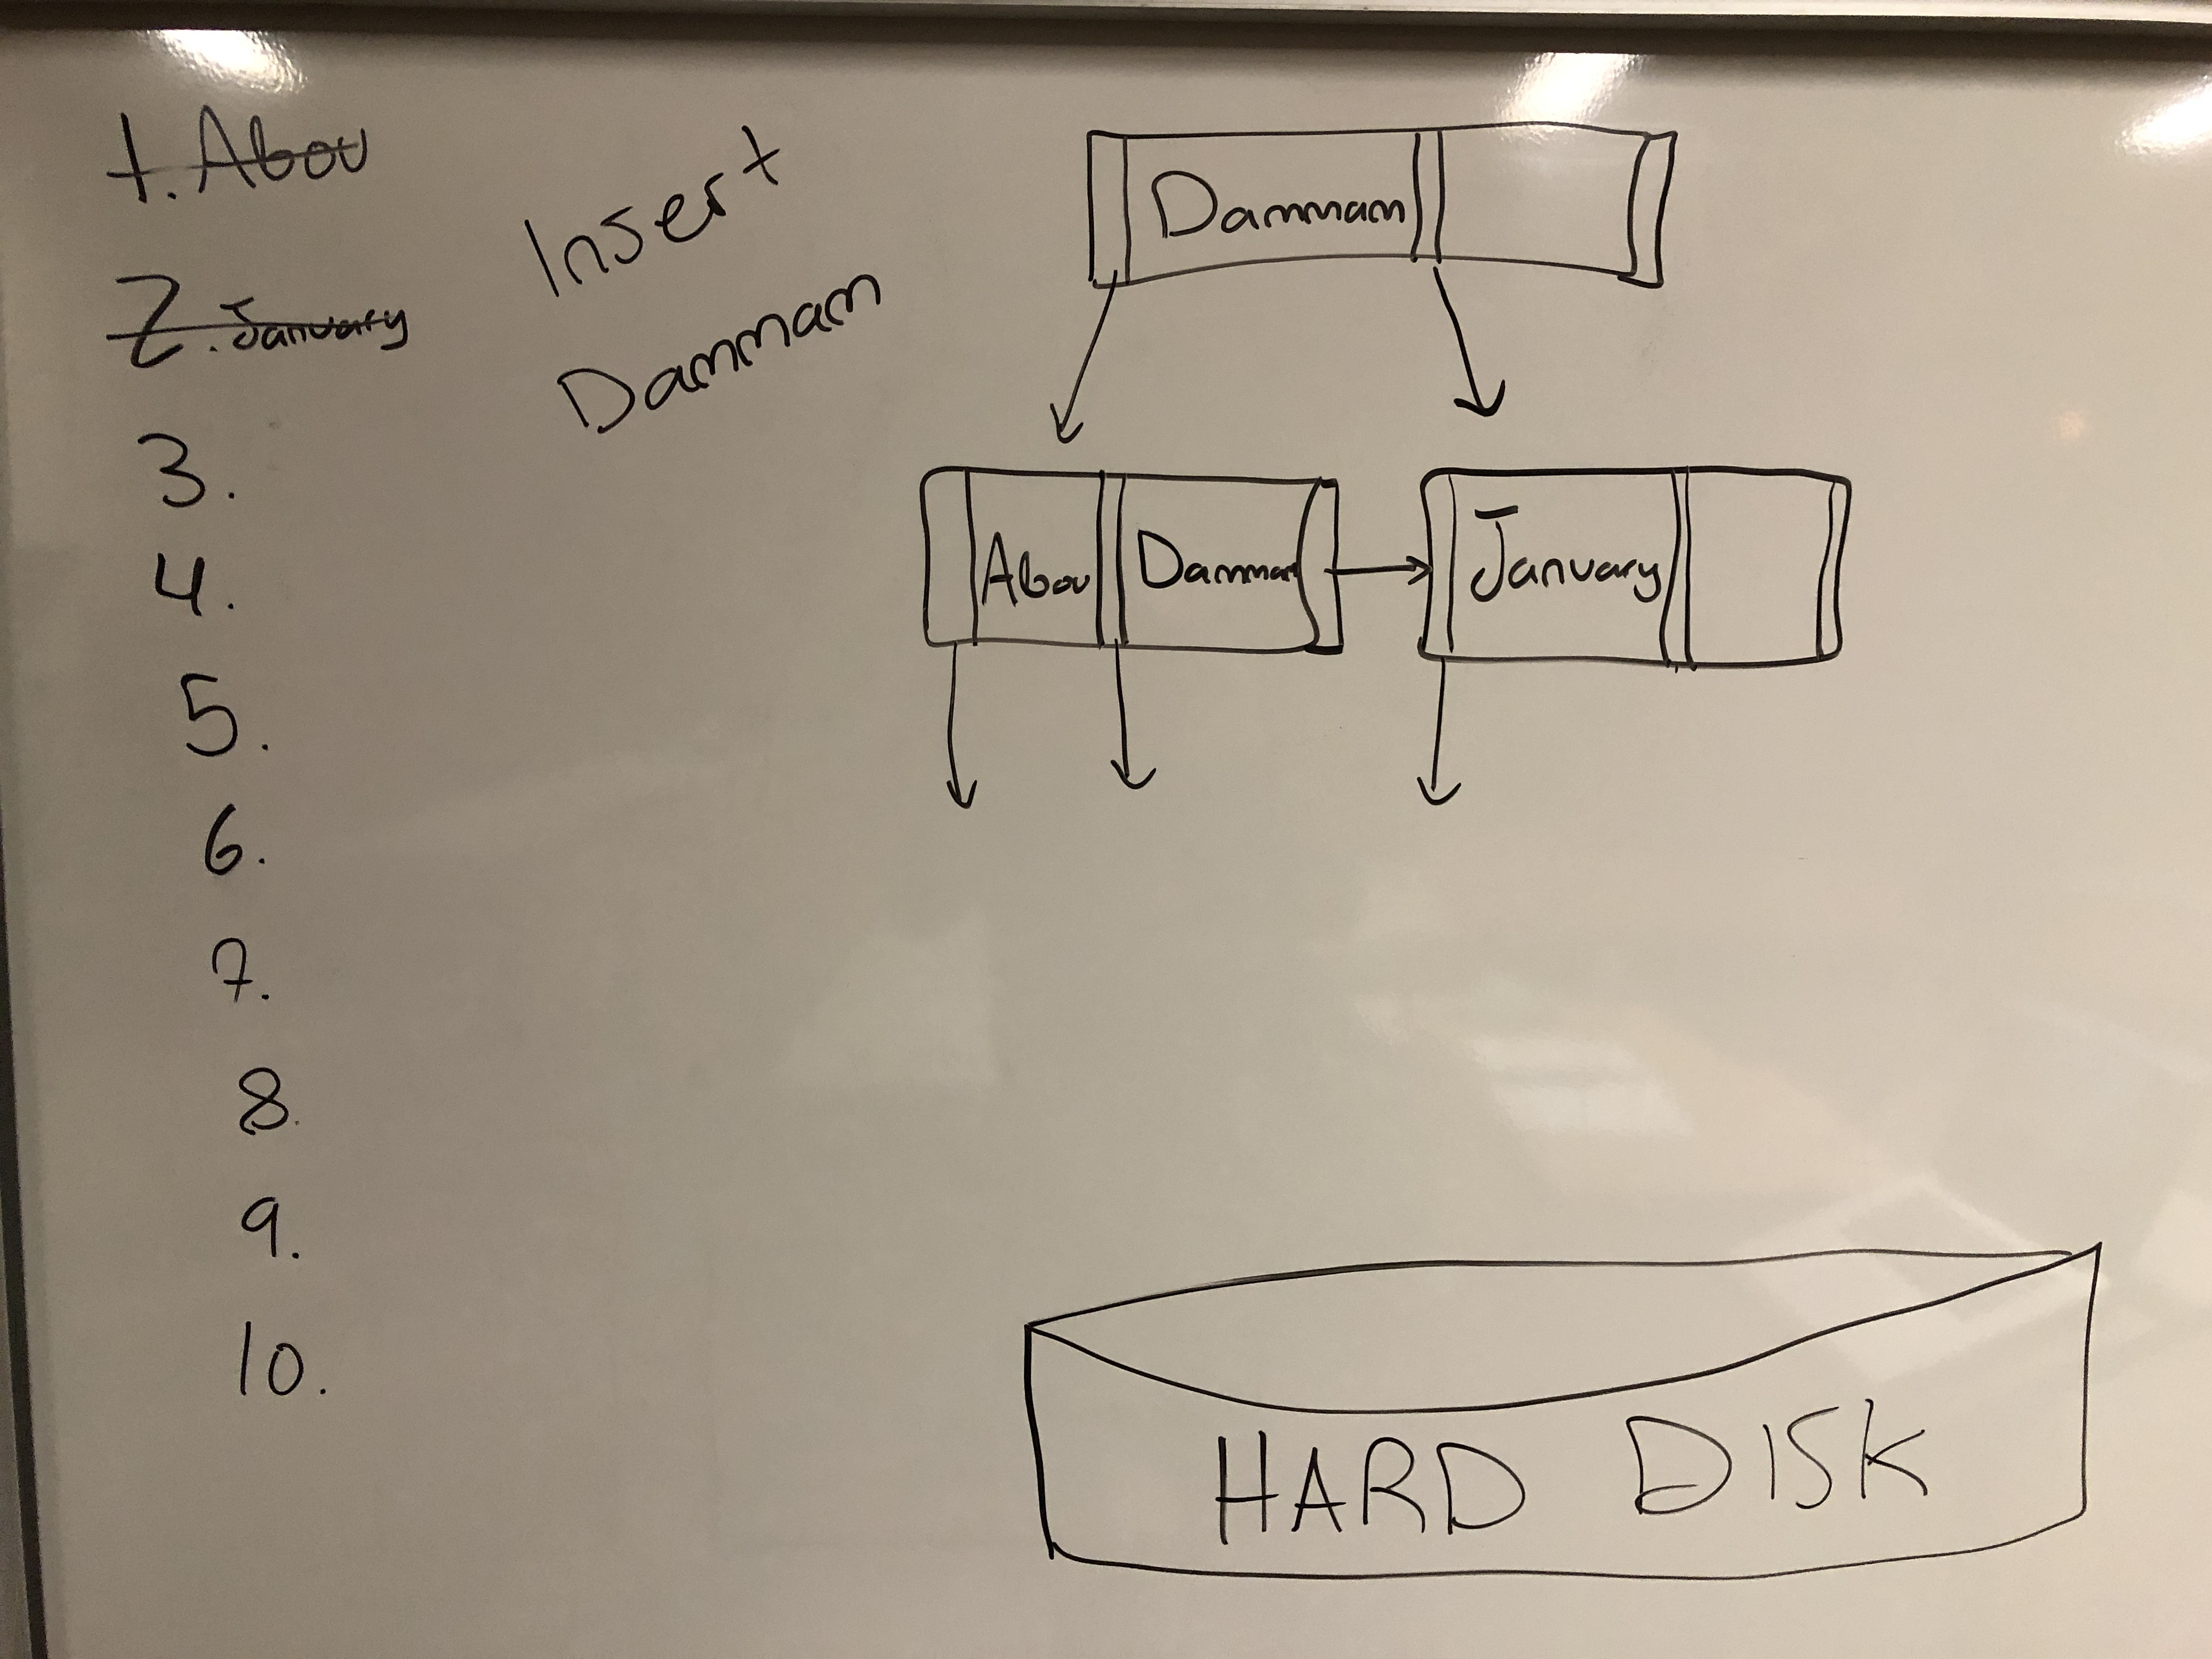 1. Abou
2. January
3.
4.
5.
6.
7.
8.
9.
10.
Insert
Dammam
Dammam
Abou Dammam January
HARD DISK